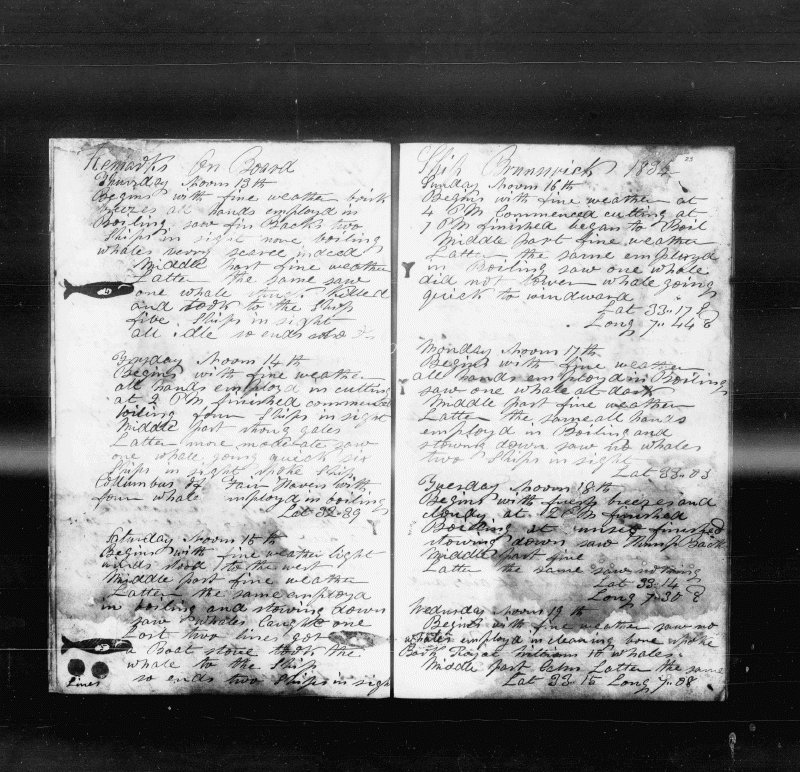 Remarks On Board
Thursday Noorn 13th
Begins with fine weather brisk
breezes all hands employd in
Boiling saw fin Backs two
Ships in sight none boiling
whales verry scarce indeed
Middle part fine weather
Latter the same saw
one whale struck killed
and took to the Ship
five Ships in sight
all idle so ends
Fryday Noorn 14th
Begins with fine weather
all hands employd in cutting
at 2 PM finished commenced
boiling four Ships in sight
Middle part strong gales
Latter more moderate saw
one whale going quick six
Ships in sight spoke Ship
Columbus of Fair Haven with
four whale employd in boiling
Lat 32..39
Saturday Noorn 15th
Begins with fine weather light
winds stood to the west
Middle part fine weather
Latter the same employd
in boiling and stowing down
saw whales caught one
Lost two lines got
a Boat stove took the
whale to the Ship
Lines
so ends two Ships in sight
Ship Brunswick 1834
23
Sunday Noorn 16th
Begins with fine weather at
4 PM Commenced cutting at
7 PM finished began to Boil
Middle part fine weather
Latter the same employd
in Boiling saw one whale
did not lower whale going
quick to windward
Lat 33..17
Long 7..44 E
Monday Noorn 17th
Begins with fine weather
all hands employd in Boiling
saw one whale at dark
Middle part fine weather
Latter the same all hands
employd in Boiling and
stowing down saw no whales
two Ships in sight
Lat 33..03
Tuesday Noorn 18th
Begins with fresh breezes and
cloudy at 12 PM finished
Boiling at sunset finished
stowing down saw Hump Back
Middle part fine
Latter the same saw nothing
Lat 33..14
Long 7..30 E
Wedensday Noorn 19th
Begins with fine weather saw no
whales employd in cleaning bone spoke
Bark 10 whales
Middle part Calm Latter the same
Lat 33..15 Long 7..08